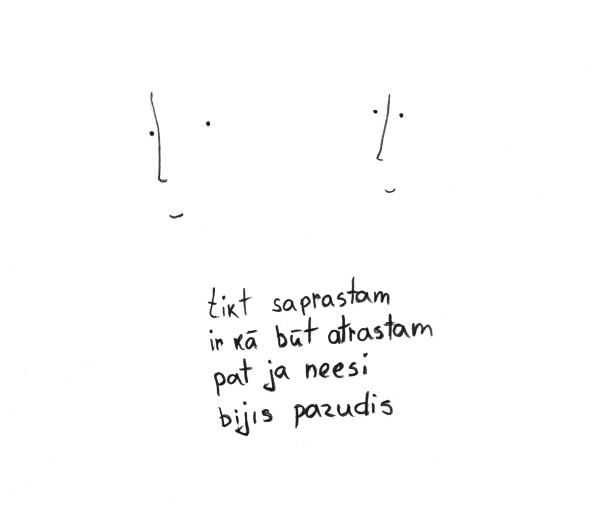 tikt saprastam
ir kā būt atrastam
pat ja neesi
bijis pazudis